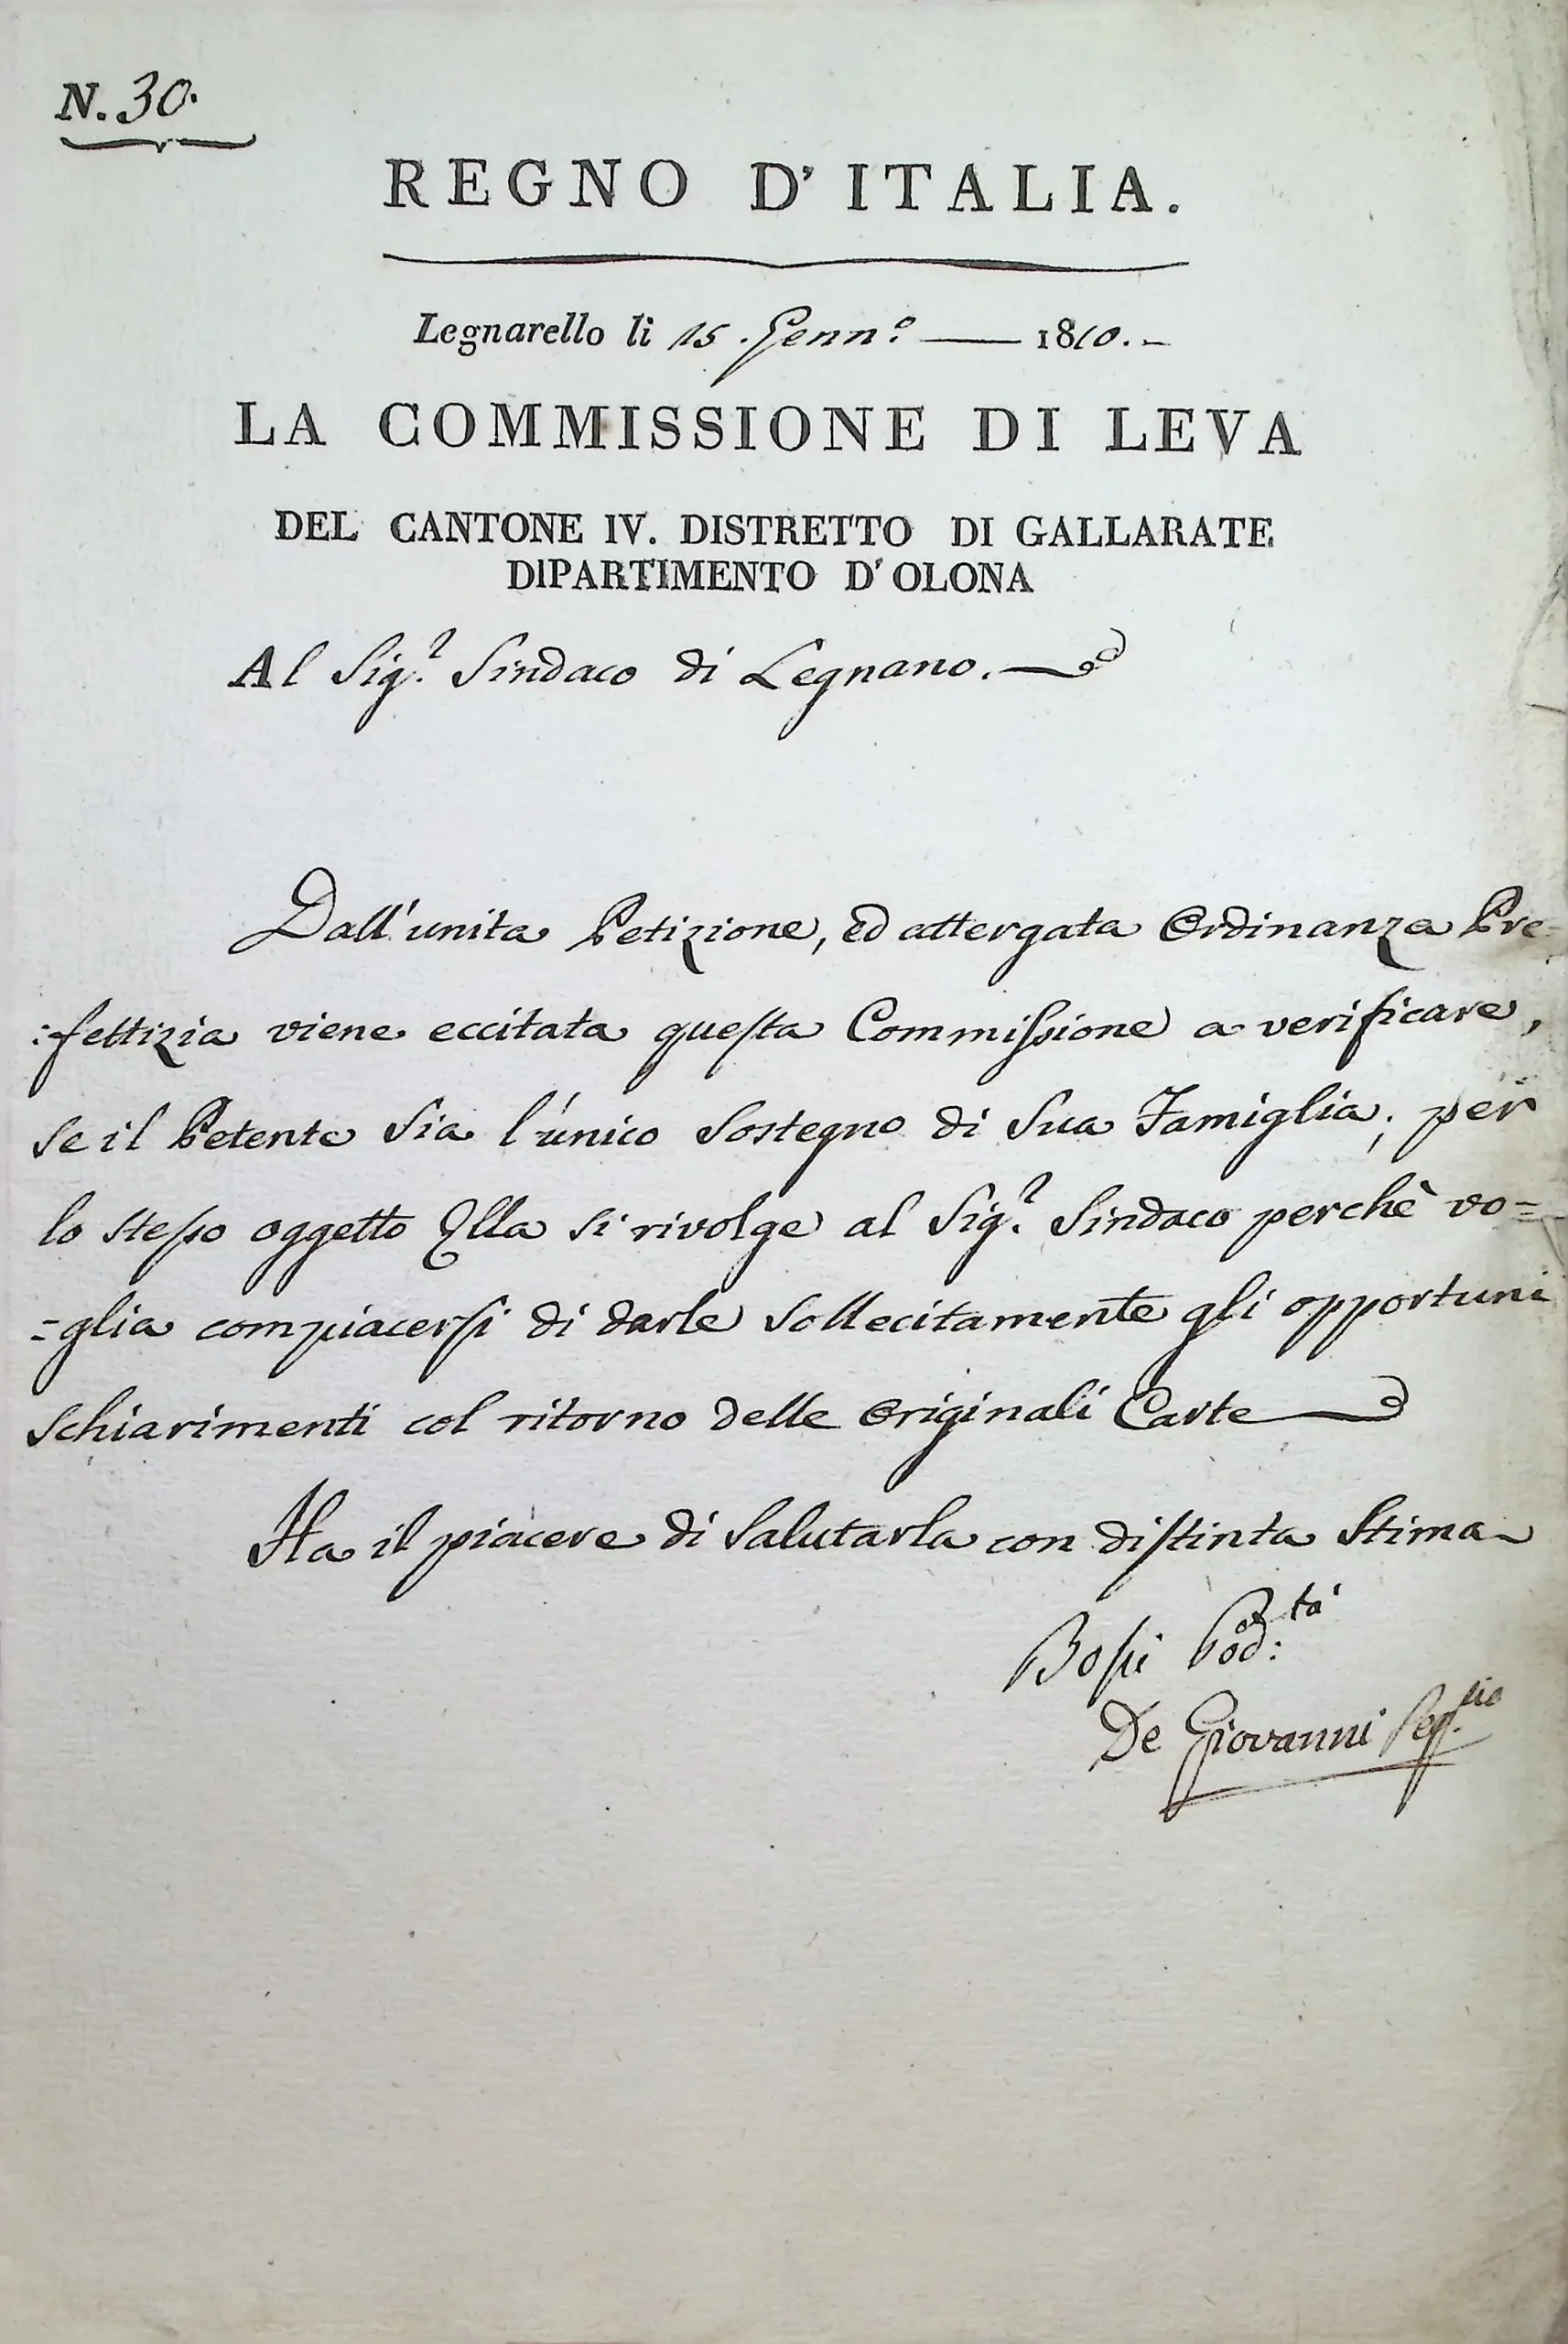 N. 30.
REGNO D'ITALIA.
Legnarello li 15. Genn.º — 1810. -
LA COMMISSIONE DI LEVA
DEL CANTONE IV. DISTRETTO DI GALLARATE
DIPARTIMENTO D'OLONA
Al Sig.r Sindaco di Legnano.
Dall'unita Petizione, ed attergata Ordinanza Pre=
:fettizia viene eccitata questa Commissione a verificare,
se il Petente sia l'unico sostegno di sua Famiglia; per
lo stesso oggetto Ella si rivolge al Sig.r Sindaco perchè vo=
=glia compiacersi di darle sollecitamente gli opportuni
schiarimenti col ritorno delle Originali Carte
Ha il piacere di salutarla con distinta stima
Bossi Pod:tà
De Giovanni